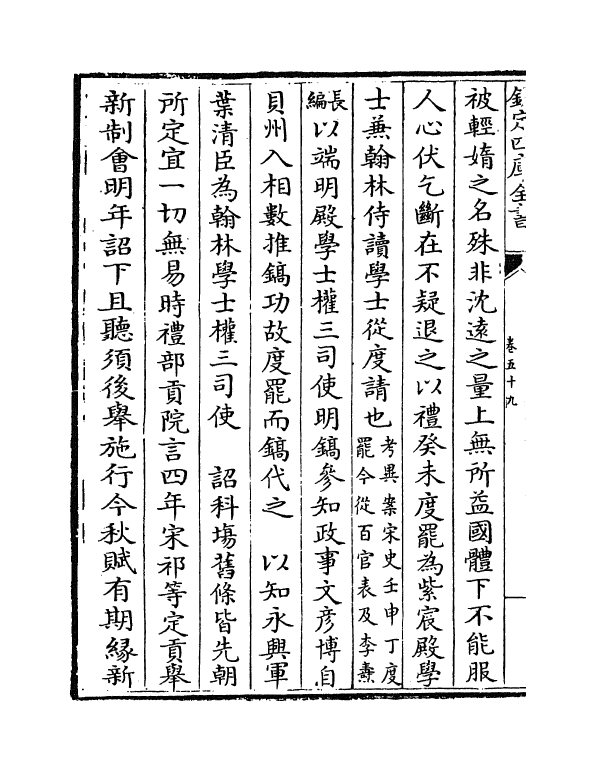 欽定四庫全書
卷五十九
被輕媠之名殊非沈遠之量上無所益國體下不能服
人心伏乞斷在不疑退之以禮癸未度罷為紫宸殿學
士兼翰林侍讀學士從度請也考異案宋史壬申丁度
罷今從百官表及李燾
長編以端明殿學士權三司使明鎬參知政事文彦博自
貝州入相數推鎬功故度罷而鎬代之　以知永興軍
葉清臣為翰林學士權三司使　詔科塲舊條皆先朝
所定宜一切無易時禮部貢院言四年宋祁等定貢舉
新制會明年詔下且聽須後舉施行今秋賦有期緣新